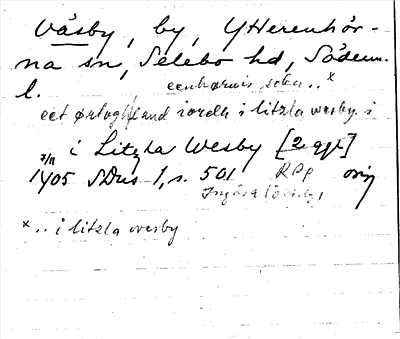 Väsby, by, YHerenhör-
na sn, Selebo hd, Söderm.
l.
eenhørnis sokn..x
eet ørtoghland iordh i litzla wesby i
i Litzla Wesby [2 ggr]
7/11
1405 SDns 1, s. 501 RPp orig
x.. i litzla wesby